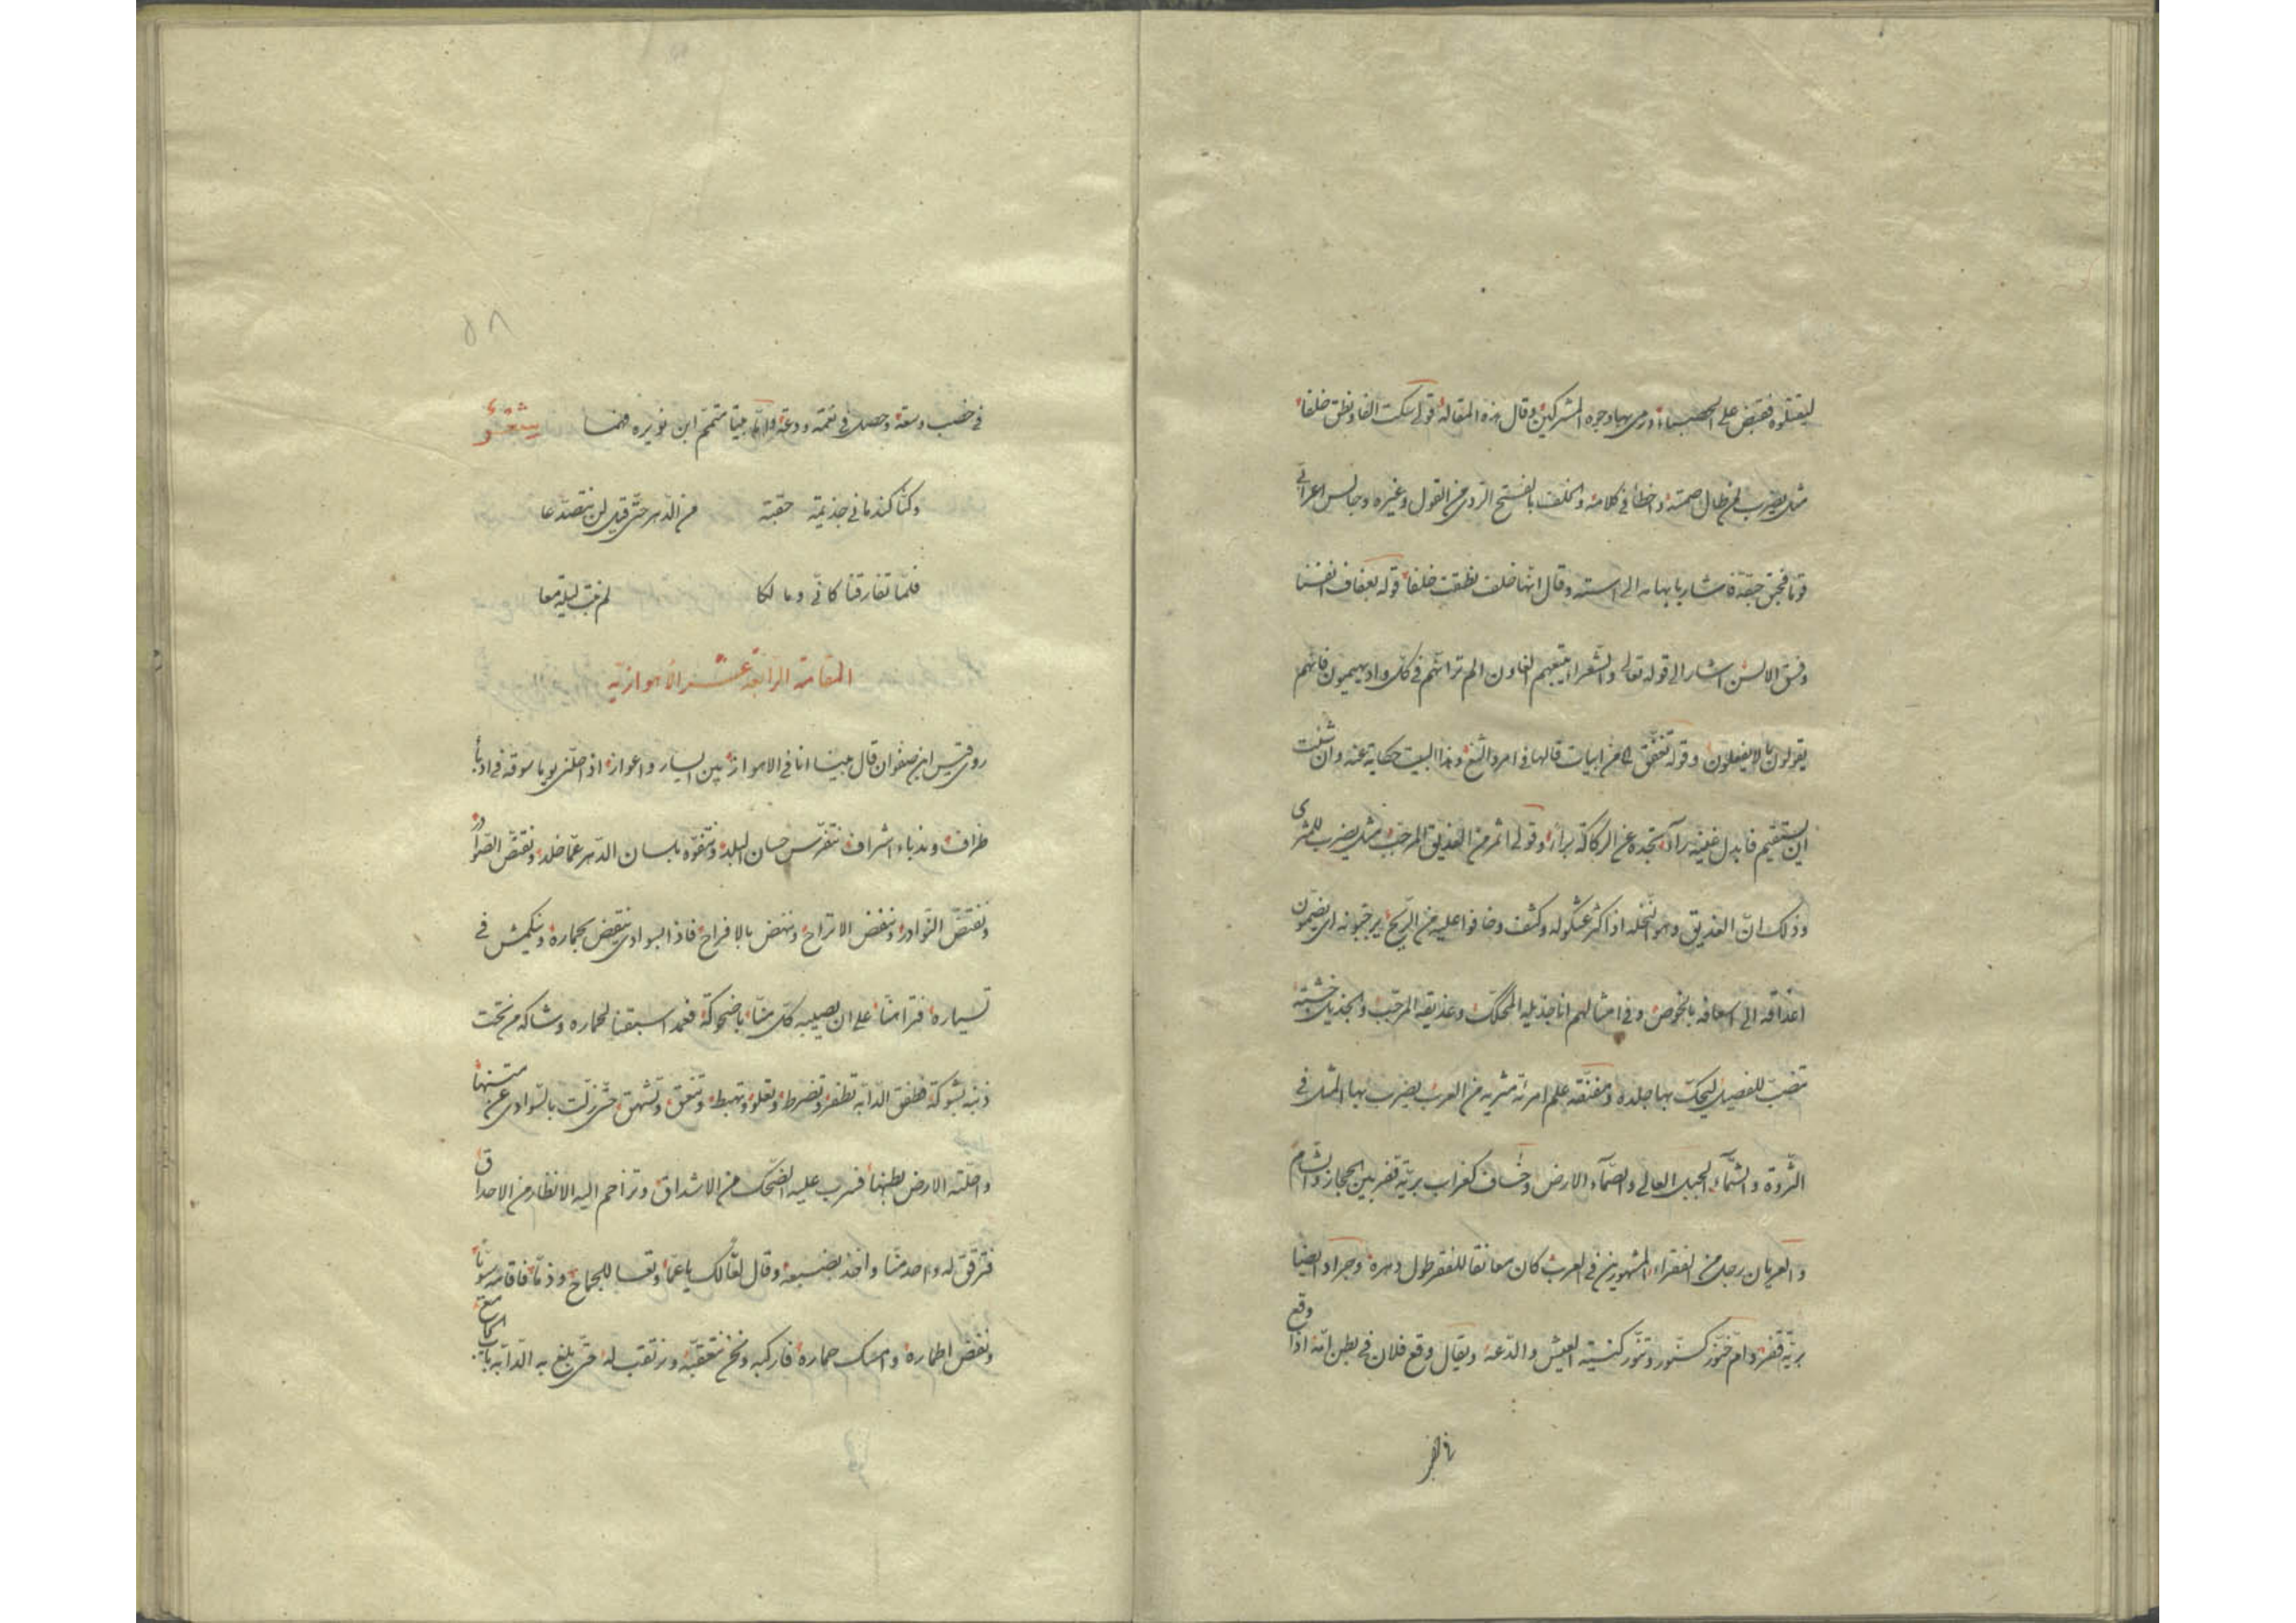 ليقتلوه فقبض على الحصباء ورمى بها وجوه المشركين وقال هذه المقالة قولى سكت الفا ونطق خلفا
مثل يضرب لمن طال صمته واخطأ فى كلامه والخلف بالفتح الردى من القول وغيره وجالس اعرابى
قوما فحبق حبقة فاشار بابهامه الى استه وقال انها خلف نطقت خلفا قوله بعفاف انفسنا
وفسق الالسن اشار الى قوله تعالى والشعراء يتبعهم الغاون الم تر انهم فى كل واد يهيمون فانهم
يقولون ما لا يفعلون وقوله من ابيات قالها فى امرد الثغ وهذا البيت حكاية عنه وان شئت
ان يستقيم فابدل غينه راآ تجده عن الركاكة براء وقولى اثمر من العذيق المرجب مثل يضرب للمثرى
وذلك ان العذيق وهو النخله اذا كثر عثكوله وكثف وخافوا عليه من الريح يرجبونه اى يضمون
اعذاقه الى اسعافه بالخوص وفى امثالهم انا جذيله المحكك وعذيقه المرجب والجذيل خشبة
تنصب للفصيل ليحك بها جلده علم امرئة مثريه من العرب يضرب بها المثل فى
الثروة والشماء الجبل العالى والصماء الارض وخساف كغراب برية قفر بين الحجاز والشام
والعريان رجل من الفقراء المشهورين فى العرب كان معانقا للفقر طول دهره وجراد ايضا
برية قفر وام خنور كسنور وتنور كنية العيش والدعة ويقال وقع فلان فى بطن امه اذا وقع
فى خصب وسعة وحصل فى نعمة ودعة واما بيتا متمم ابن نويره فهما شعر
وكنا كندمانى جذيمة حقبة من الدهر حتى قيل لن نتصدعا
فلما تفارقنا كانى ومالكا لم نبت ليلة معا
المقامة الرابعة عشر الأهوازية
روى قيس ابن صفوان قال بينا انا فى الاهواز بين اليسار واعواز اذ احلنى يوما سوقه فى ادباء
ظراف وندباء اشراف نتفرس حسان البلد ونتفوه بلسان الدهر عما خلد ونقتص الصوادر
ونقتص النوادر وننفض الاتراح وننهض بالافراح فاذا بسوادى ينقض بحماره وينكمش فى
تسياره فترامنا على ان يصيبه كل منا باضحوكة فعمد اسبقنا لحماره وشاكه من تحت
ذنبه بشوكة فطفق الدابه تطفر وتضرط وتعلو وتهبط وتنعق وتشهق حتى زلت بالسوادى عن متنها
واحلته الارض بطنها فسرب عليه الضحك من الاشداق وتزاحم اليه الانظار من الاحداق
فترقق له واحد منا واخذ بضبعه وقال لعا لك يا عماه وتعسا للجماح وذما فاقامه سويا
ونفض اطماره وامسك حماره فاركبه ونحن نتعقبه ونرتقب له حتى بلغ به الدابه باب الجامع